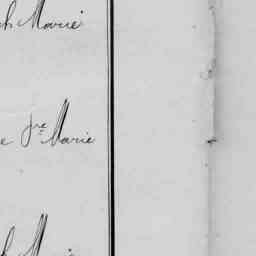 ch Marie
e Jne Marie
h M